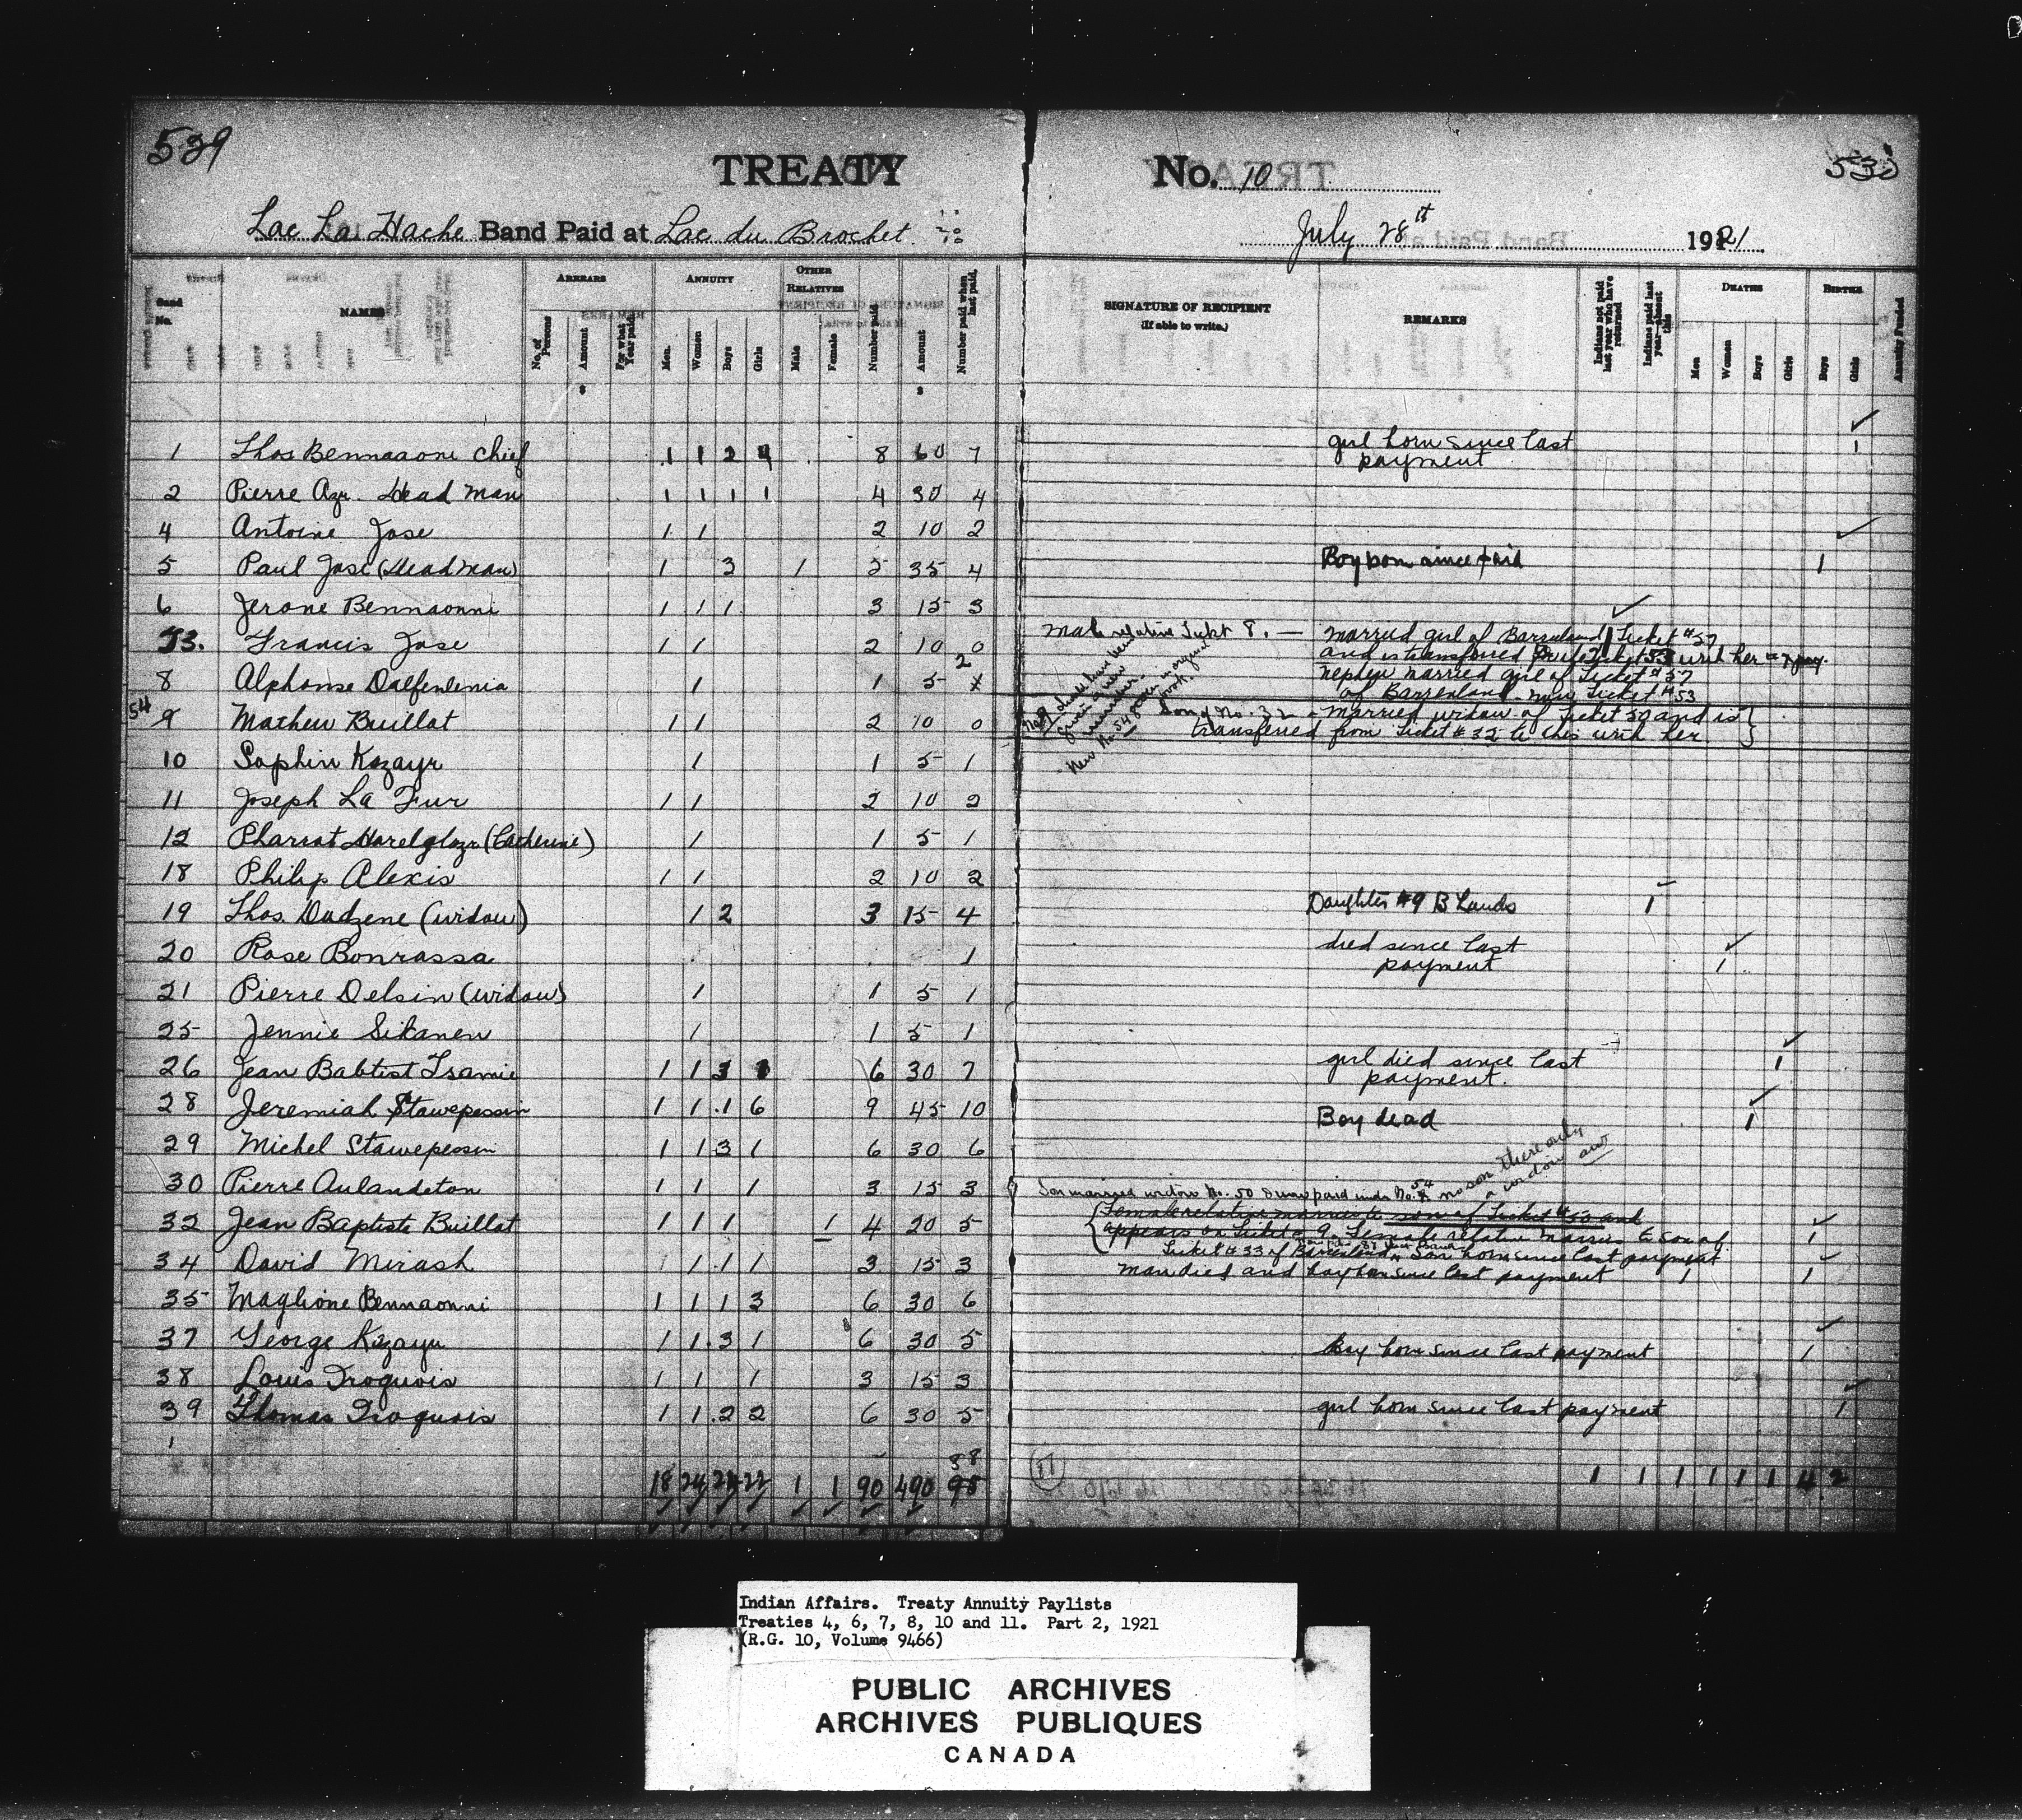 539
530
TREATY No. 10
Lac La Hache Band Paid at Lac du Brochet July 28th 1921
Band No.
NAMES
ARREARS
No. of Persons
Amount
For what Year paid.
ANNUITY
Men.
Women
Boys
Girls
OTHER RELATIVES
Male
Female
Number paid
Amount
Number paid when last paid.
SIGNATURE OF RECIPIENT
(If able to write.)
REMARKS
Indians not paid last year who have returned
Indians paid last year—absent this
DEATHS
Men
Women
Boys
Girls
BIRTHS
Boys
Girls
Annuity Funded
1 Thos Bennaaoni Chief 1 1 2 4 8 60 7 girl born since last payment 1
2 Pierre Azr. Head Man 1 1 1 1 4 30 4
4 Antoine Jose 1 1 2 10 2
5 Paul Jose (Head Man) 1 3 1 5 35 4 Boy born since paid 1
6 Jerone Bennaonni 1 1 1 3 15 3
53. Francis Jose 1 1 2 10 0 Male relative Tickt 8. — Married girl of Barrenland Ticket #57
and is transferred with her
8 Alphonse Dalfenlenia 1 1 5 2 nephew married girl of Ticket #57
of Barrenland now Ticket #53
54 9 Mathew Buillat 1 1 2 10 0 Son of No. 32 - Married widow of Ticket 50 and is
transferred from Ticket #32 to this with her
No 9 should have been given a new number.
New No. 54 given in original book.
10 Saphin Kazayr 1 1 5 1
11 Joseph La Fur 1 1 2 10 2
12 Pharrat Harelglazr (Catherine) 1 1 5 1
18 Philip Alexis 1 1 2 10 2
19 Thos. Dadzene (widow) 1 2 3 15 4 Daughter #9 B Lands 1
20 Rose Bonrassa 1 died since last payment 1
21 Pierre Delsin (widow) 1 1 5 1
25 Jennie Sikanen 1 1 5 1
26 Jean Babtist Tsamie 1 1 3 1 6 30 7 girl died since last payment. 1
28 Jeremiah Stawepessin 1 1 1 6 9 45 10 Boy dead 1
29 Michel Stawepessin 1 1 3 1 6 30 6
30 Pierre Aulandeton 1 1 1 3 15 3 Son married widow No. 50 & now paid under No. 54 no son there only a widow
32 Jean Baptiste Buillat 1 1 1 1 4 20 5 Female relative married to son of Ticket #50 and
appears on Ticket 9. Female relative married to son of
Ticket #33 of Barrenland. Son born since last payment 1
34 David Mirash 1 1 1 3 15 3 Man died and boy born since last payment 1 1
35 Maglione Bennaonni 1 1 1 3 6 30 6
37 George Kazayr 1 1 3 1 6 30 5 Boy born since last payment 1
38 Louis Iroquois 1 1 1 3 15 3
39 Thomas Iroquois 1 1 2 2 6 30 5 girl born since last payment 1
88
18 24 24 22 1 1 90 490 98 1 1 1 1 1 1 4 2
Indian Affairs. Treaty Annuity Paylists
Treaties 4, 6, 7, 8, 10 and 11. Part 2, 1921
(R.G. 10, Volume 9466)
PUBLIC ARCHIVES
ARCHIVES PUBLIQUES
CANADA